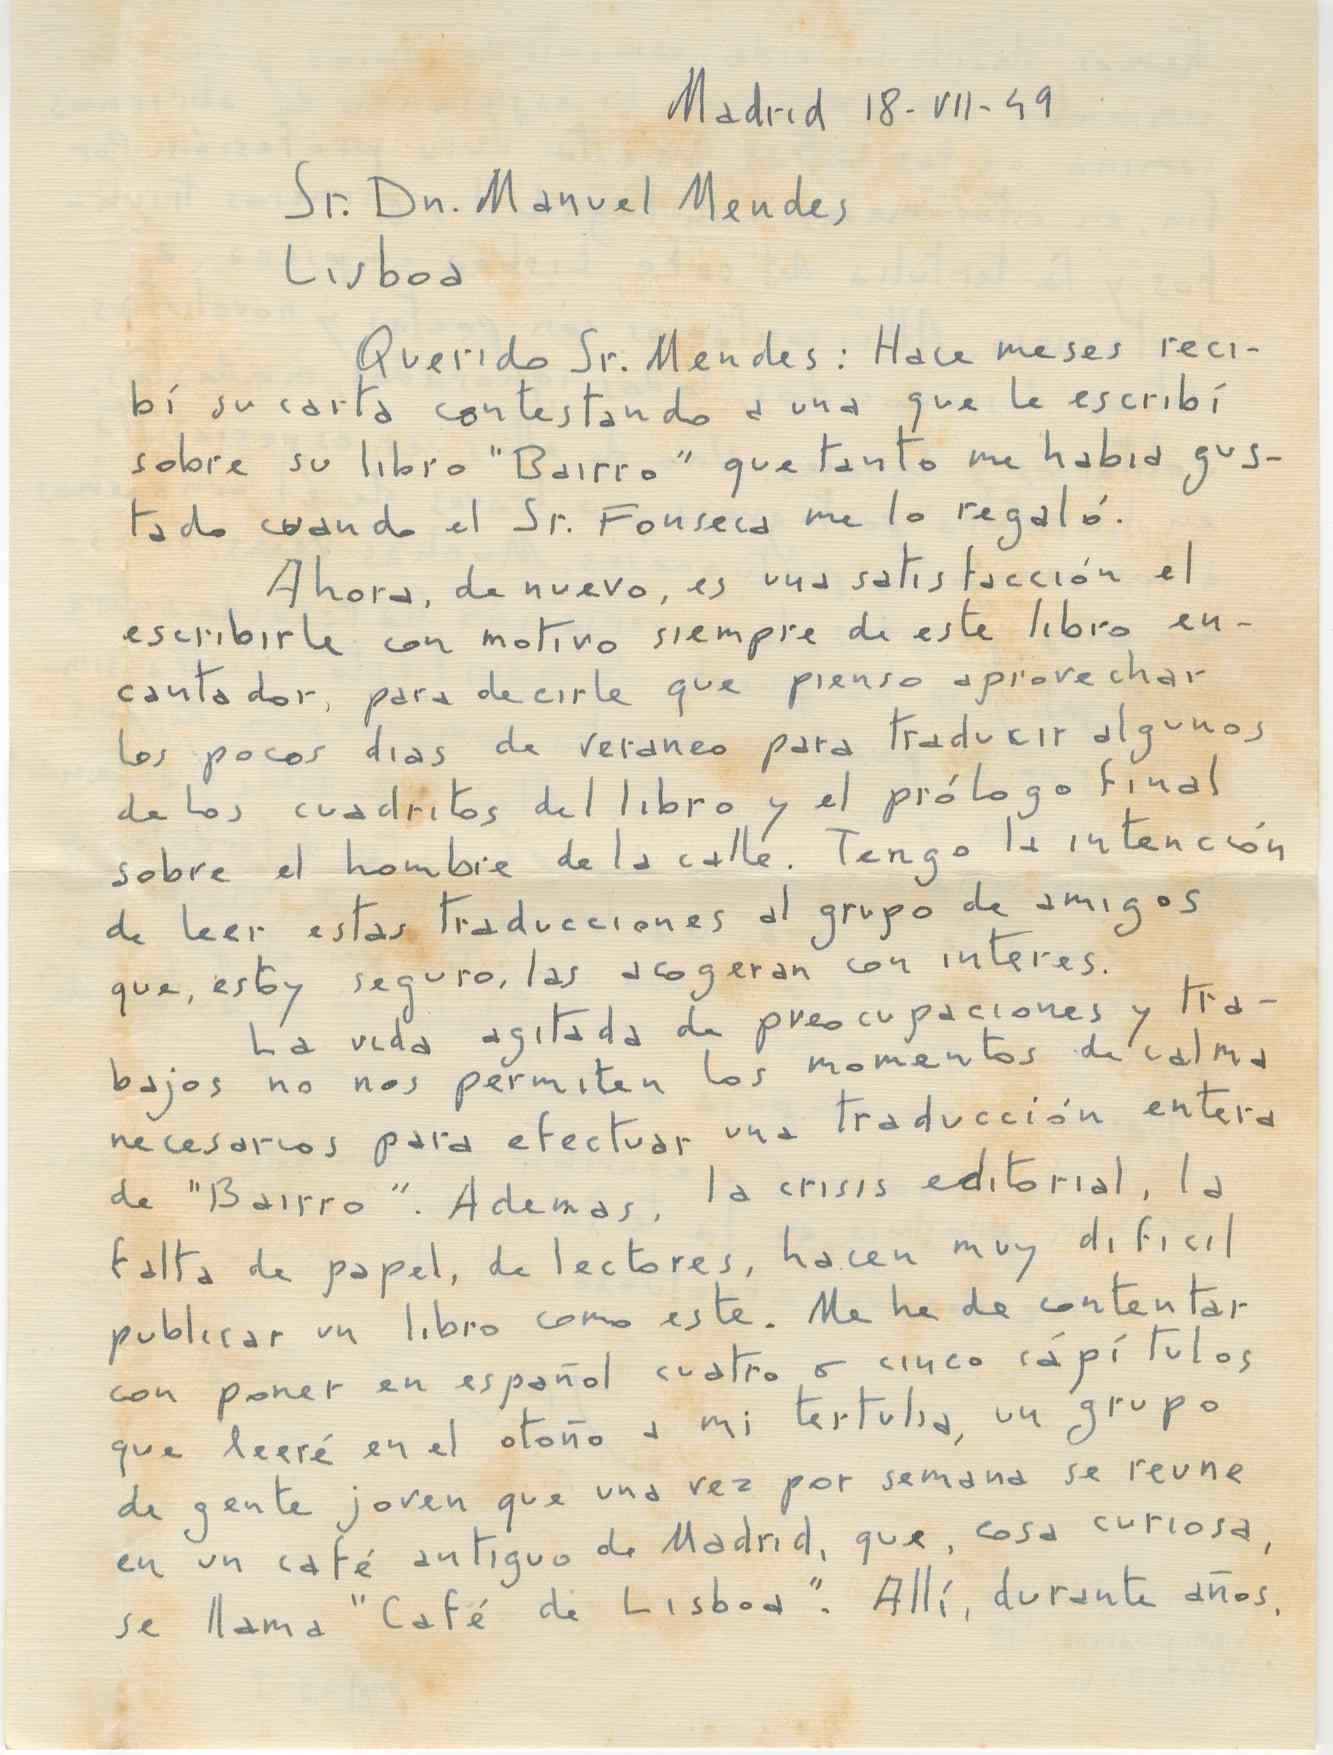 Madrid 18-VII-49
Sr. Dn. Manuel Mendes
Lisboa
Querido Sr. Mendes: Hace meses reci-
bí su carta contestando a una que le escribí
sobre su libro "Bairro" que tanto me habia gus-
tado cuando el Sr. Fonseca me lo regaló.
Ahora, de nuevo, es una satisfacción el
escribirle con motivo siempre de este libro en-
cantador, para decirle que pienso aprovechar
los pocos dias de veraneo para traducir algunos
de los cuadritos del libro y el prólogo final
sobre el hombre de la calle. Tengo la intención
de leer estas traducciones al grupo de amigos
que, estoy seguro, las acogeran con interes.
La vida agitada de preocupaciones y tra-
bajos no nos permiten los momentos de calma
necesarios para efectuar una traducción entera
de "Bairro". Ademas, la crisis editorial, la
falta de papel, de lectores, hacen muy dificil
publicar un libro como este. Me he de contentar
con poner en español cuatro o cinco cápítulos
que leeré en el otoño a mi tertulia, un grupo
de gente joven que una vez por semana se reune
en un café antiguo de Madrid, que, cosa curiosa,
se llama "Café de Lisboa". Allí, durante años,